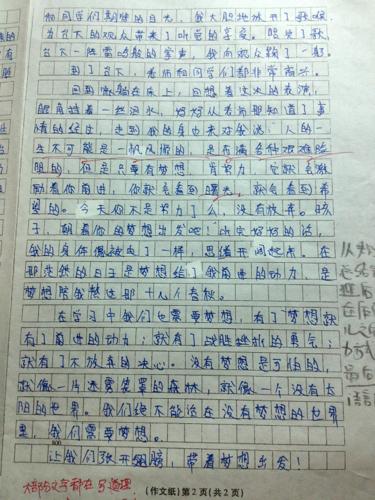 和同学们期待的目光，我大胆地放开了歌喉，
为台下的观众带来了听觉的享受。唱完了歌，
台下一阵雷鸣般的掌声，我向观众鞠了一躬。
到了台下，老师和同学们都非常高兴。
回到家躺在床上，回想着这次的表演，
眼角挂着一丝泪水，妈妈从老师那知道了事
情的经过，走到我的身边来对我说：人的一
生不可能是一帆风顺的，是布满各种艰难险
阻的，但是只要有梦想，肯努力，它就会激
励着你前进，你就会看到曙光，就会看到希
望的。今天你不是努力了么，没有放弃。孩
子，朝着你的梦想出发吧！听完妈妈的话，
我的身体像被电了一样，思绪开阔起来。在
那茫然的日子是梦想给了我前进的动力，是
梦想陪我熬过那十几个春秋。
在学习中我们也需要梦想，有了梦想就
有了前进的动力；就有了战胜挫折的勇气；
就有了不放弃的决心。没有梦想是可怕的，
就像一片迷雾笼罩的森林，就像一个没有太
阳的世界。我们绝不能活在没有梦想的世界
里，我们需要梦想。
800
让我们张开翅膀，带着梦想出发！
(作文纸) 第2页 (共2页)
文字都在写道理